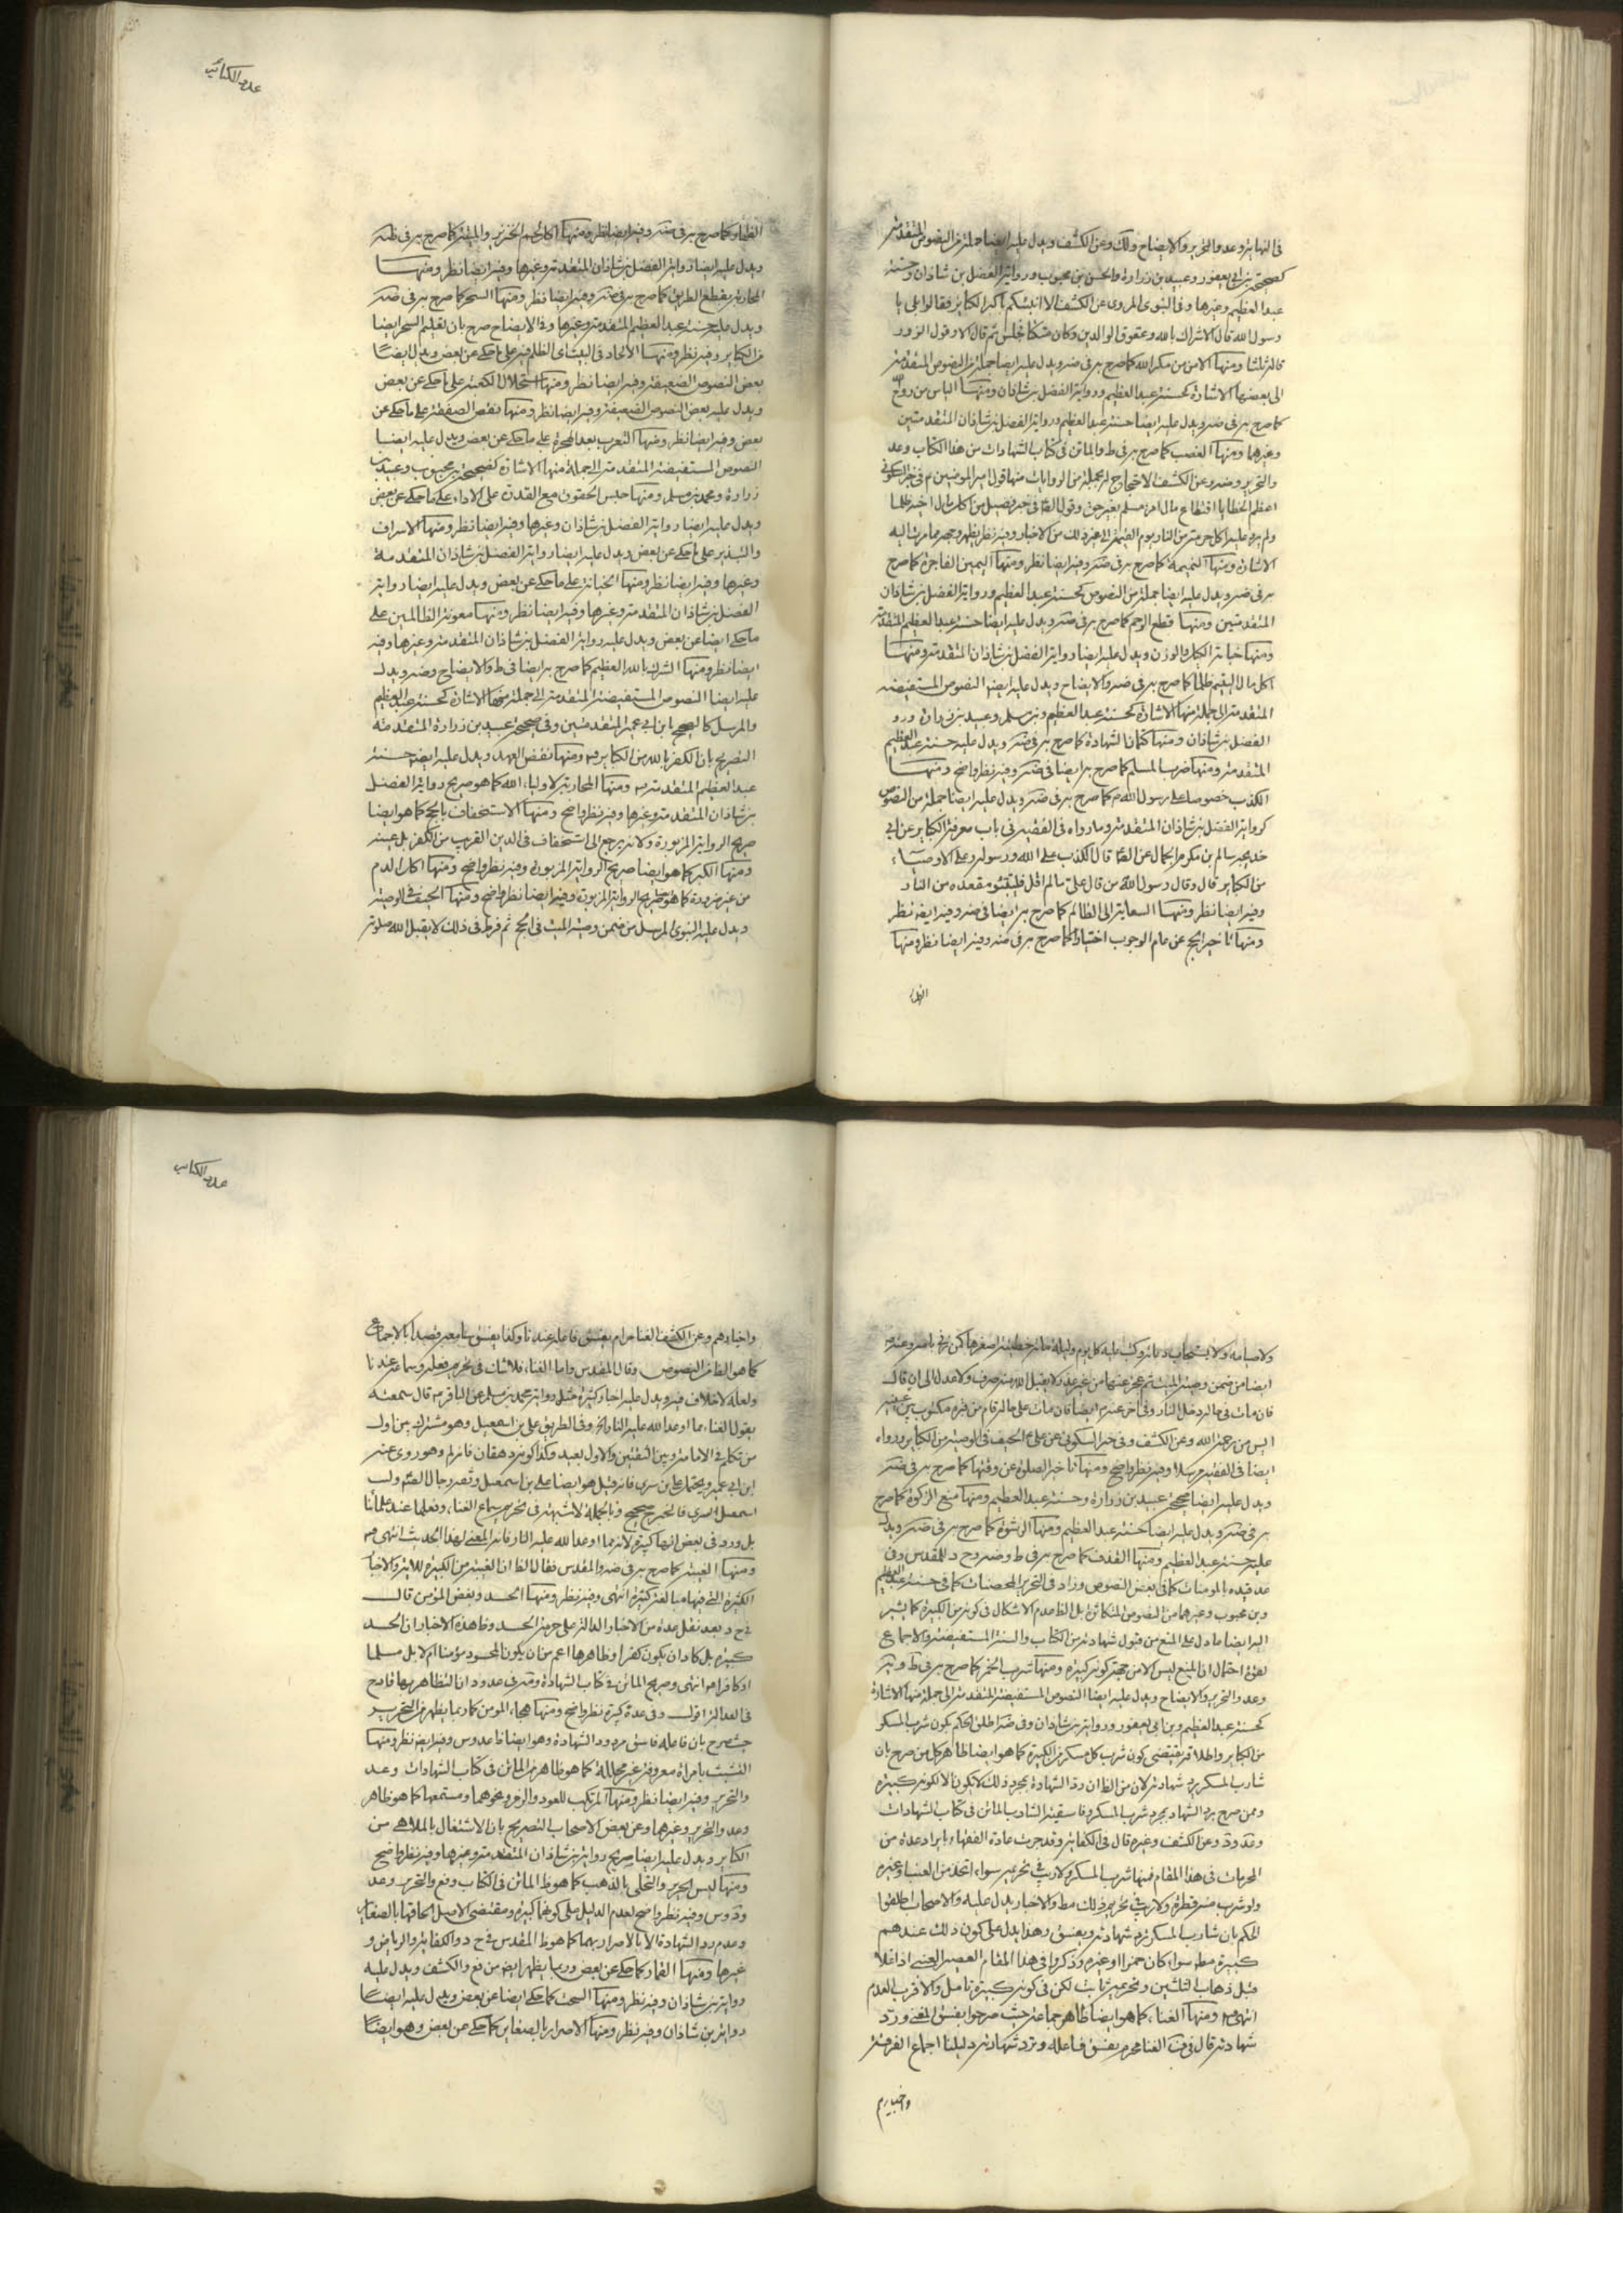 في النهاية وعد والتحرير والايضاح ولك وعن الكشف ويدل عليه ايضا جملة من النصوص المتقدمة
كصحيحة بن ابي يعفور وعبيد بن زرارة والحسن بن محبوب ورواية الفضل بن شاذان وحسنة
عبد العظيم وغيرها وفي النبوي المروي عن الكشف الا انبئكم باكبر الكبائر فقالوا بلى يا
رسول الله قال الاشراك بالله وعقوق الوالدين وكان متكئا فجلس ثم قال الا وقول الزور
قالها ثلثا ومنها الامن من مكر الله كما صرح به في ضه ويدل عليه ايضا جملة من النصوص المتقدمة
الى بعضها الاشارة كحسنة عبد العظيم ورواية الفضل بن شاذان ومنها الياس من روح الله
كما صرح به في ضه ويدل عليه ايضا حسنة عبد العظيم ورواية الفضل بن شاذان المتقدمتين
وغيرها ومنها الغصب كما صرح به في ط والماتن في كتاب الشهادات من هذا الكتاب وعد
والتحرير وضه وعن الكشف الاحتجاج له بجملة من الروايات منها قول امير المؤمنين م في خبر السكوني
اعظم الخطايا اقتطاع مال امرء مسلم بغير حق وقول الصادق في خبر فضيل من اكل مال اخيه ظلما
ولم يرده عليه اكل جمرة من النار يوم القيمة الى غير ذلك من الاخبار وفيه نظر يظهر وجهه مما مرت اليه
الاشارة ومنها النميمة كما صرح به في ضه وفيه ايضا نظر ومنها اليمين الفاجرة كما صرح
به في ضه ويدل عليه ايضا جملة من النصوص كحسنة عبد العظيم ورواية الفضل بن شاذان
المتقدمتين ومنها قطع الرحم كما صرح به في ضه ويدل عليه ايضا حسنة عبد العظيم المتقدمة
ومنها خيانة الكيل والوزن ويدل عليه ايضا رواية الفضل بن شاذان المتقدمة ومنها
اكل مال اليتيم ظلما كما صرح به في ضه والايضاح ويدل عليه ايضا النصوص المستفيضة
المتقدمة الى جملة منها الاشارة كحسنة عبد العظيم وبن مسلم وعبيد بن زرارة ورو
الفضل بن شاذان ومنها كتمان الشهادة كما صرح به في ضه ويدل عليه حسنة عبد العظيم
المتقدمة ومنها ضرب المسلم كما صرح به ايضا في ضه وفيه نظر واضح ومنها
الكذب خصوصا على رسول الله ص كما صرح به في ضه ويدل عليه ايضا جملة من النصوص
كرواية الفضل بن شاذان المتقدمة وما رواه في الفقيه في باب معرفة الكبائر عن ابي
خديجة سالم بن مكرم الجمال عن الصادق قال الكذب على الله ورسوله وعلى الاوصياء
من الكبائر قال وقال رسول الله من قال علي ما لم اقل فليتبوء مقعده من النار
وفيه ايضا نظر ومنها السعاية الى الظالم كما صرح به ايضا في ضه وفيه ايضا نظر
ومنها تاخير الحج عن عام الوجوب اختيارا كما صرح به في ضه وفيه ايضا نظر ومنها
الظهار
عدد الكبائر
الظهار كما صرح به في ضه وفيه ايضا نظر ومنها اكل لحم الخنزير والميتة كما صرح به في ضه
ويدل عليه ايضا رواية الفضل بن شاذان المتقدمة وغيرها وفيه ايضا نظر ومنها
المحاربة بقطع الطريق كما صرح به في ضه وفيه ايضا نظر ومنها السحر كما صرح به في ضه
ويدل عليه حسنة عبد العظيم المتقدمة وغيرها وفي الايضاح صرح بان تعليم السحر ايضا
من الكبائر وفيه نظر ومنها الالحاد في البيت اي الظلم فيه على ما حكي عن بعض ويدل ايضا
بعض النصوص الضعيفة وفيه ايضا نظر ومنها استحلال الكعبة على ما حكي عن بعض
ويدل عليه بعض النصوص الضعيفة وفيه ايضا نظر ومنها نقض الصفقة على ما حكي عن
بعض وفيه ايضا نظر ومنها التعرب بعد الهجرة على ما حكي عن بعض ويدل عليه ايضا
النصوص المستفيضة المتقدمة الى جملة منها الاشارة كصحيحة بن محبوب وعبيد بن
زرارة ومحمد بن مسلم ومنها حبس الحقوق مع القدرة على الاداء على ما حكي عن بعض
ويدل عليه ايضا رواية الفضل بن شاذان وغيرها وفيه ايضا نظر ومنها الاسراف
والتبذير على ما حكي عن بعض ويدل عليه ايضا رواية الفضل بن شاذان المتقدمة
وغيرها وفيه ايضا نظر ومنها الخيانة على ما حكي عن بعض ويدل عليه ايضا رواية
الفضل بن شاذان المتقدمة وغيرها وفيه ايضا نظر ومنها معونة الظالمين على
ما حكي ايضا عن بعض ويدل عليه رواية الفضل بن شاذان المتقدمة وغيرها وفيه
ايضا نظر ومنها الشرك بالله العظيم كما صرح به ايضا في ط والايضاح وضه ويدل
عليه ايضا النصوص المستفيضة المتقدمة الى جملة منها الاشارة كحسنة عبد العظيم
والمرسل كالصحيح بابن ابي عمير المتقدمتين وفي صحيحة عبيد بن زرارة المتقدمة
التصريح بان الكفر بالله من الكبائر ومنها نقض العهد ويدل عليه ايضا حسنة
عبد العظيم المتقدمة ومنها المحاربة لاولياء الله كما هو صريح رواية الفضل
بن شاذان المتقدمة وغيرها وفيه نظر واضح ومنها الاستخفاف بالحج كما هو ايضا
صريح الرواية المزبورة ولانه يرجع الى استخفاف في الدين القريب من الكفر بل عينه
ومنها الكبر كما هو ايضا صريح الرواية المزبورة وفيه نظر واضح ومنها اكل الدم
من غير ضرورة كما هو صريح الرواية المزبورة وفيه ايضا نظر واضح ومنها الحيف في الوصية
ويدل عليه النبوي المرسل من ضمن وصية الميت في الحج ثم فرط في ذلك لا يقبل الله صلوته
ولا صيامه ولا يستجاب دعائه وكتب عليه كل يوم وليلة مائة خطيئة اصغرها كمن زنى بامه وعنه ص
ايضا من ضمن وصية الميت ثم عجز عنها من غير عذر لا يقبل الله منه صرف ولا عدل الى ان قال
فان مات في حاله دخل النار وفي اخر عنه ايضا فان مات على حاله قام من قبره مكتوب بين عينيه
ايس من رحمة الله وعن الكشف وفي خبر السكوني عن علي ع الحيف في الوصية من الكبائر ورواه
ايضا في الفقيه مرسلا وفيه نظر واضح ومنها تاخير الصلوة عن وقتها كما صرح به في ضه
ويدل عليه ايضا صحيحة عبيد بن زرارة وحسنة عبد العظيم ومنها منع الزكوة كما صرح
به في ضه ويدل عليه ايضا كحسنة عبد العظيم ومنها الرشوة كما صرح به في ضه ويدل
عليه حسنة عبد العظيم ومنها القذف كما صرح به في ط وضه وح د للمقدس وفي
عد قيده بالمومنات كما في بعض النصوص وزاد في التحرير المحصنات كما في حسنة عبد العظيم
وبن محبوب وغيرهما من النصوص المتكاثرة بل الظ عدم الاشكال في كونه من الكبيرة كما يشير
اليه ايضا ما دل على المنع من قبول شهادته من الكتاب والسنة المستفيضة والاجماع
لقوة احتمال ان المنع ليس الا من جهة كونه كبيرة ومنها شرب الخمر كما صرح به في ط وية
وعد والتحرير والايضاح ويدل عليه ايضا النصوص المستفيضة المتقدمة الى جملة منها الاشارة
كحسنة عبد العظيم وبن ابي يعفور ورواية بن شاذان وفي ضه اطلق الحكم بكون شرب المسكر
من الكبائر واطلاقه يقتضي كون شرب كل مسكر من الكبيرة كما هو ايضا ظاهر كل من صرح بان
شارب المسكر يرد شهادته لان من الظ ان رد الشهادة بمجرد ذلك لا يكون الا لكونه كبيرة
وممن صرح برد الشهادة بمجرد شرب المسكر وفاسقية الشارب الماتن في كتاب الشهادات
وعد ود وعن الكشف وغيره قال في الكفاية وقد جرت عادة الفقهاء بايراد عدة من
المحرمات في هذا المقام فمنها شرب المسكر ولا ريب في تحريمه سواء اتخذ من العنب او غيره
ولو شرب منه قطرة ولا ريب في تحريم ذلك مط والاخبار يدل عليه والاصحاب اطلقوا
الحكم بان شارب المسكر ترد شهادته ويفسق وهذا يدل على كون ذلك عندهم
كبيرة مطم سواء كان خمرا او غيره وذكروا في هذا المقام العصير العنبي اذا غلا
قبل ذهاب الثلثين وتحريمه ثابت لكن في كونه كبيرة تامل والاقرب العدم
انتهى ومنها الغناء كما هو ايضا ظاهر جماعة حيث صرحوا بفسق المغني ورد
شهادته قال في ف الغنا محرم يفسق فاعله وترد شهادته دليلنا اجماع الفرقة
واخبارهم
عدد الكبائر
واخبارهم وعن الكشف الغنا حرام يفسق فاعله عندنا وكذا يفسق سامعه قصدا بالاجماع
كما هو الظ من النصوص وقال المقدس واما الغناء فلا شك في تحريم فعله وسماعه عندنا
ولعله لا خلاف فيه ويدل عليه اخبار كثيرة مثل رواية محمد بن مسلم عن الباقر قال سمعته
يقول الغناء مما اوعد الله عليه النار الخ وفي الطريق علي بن اسمعيل وهو مشترك بين اول
من تكلم في الامامة وبين الثقتين والاول بعيد وكذا كونه دهقان فانه لم وهو روى عنه
ابن ابي عمير ويحتمل علي بن سري فانه قيل هو ايضا علي بن اسمعيل وثقه رجال الصادق ولـ
اسمعيل السري فالخبر صحيح وبالجملة لا شبهة في تحريم سماع الغناء وفعلها عند علمائنا
بل ورد في بعض انها كبيرة لانه مما اوعد الله عليه النار فانه المعنى لهذا الحديث انتهى
ومنها الغيبة كما صرح به في ضه والمقدس فقال الظ ان الغيبة من الكبيرة للاية والاخبار
الكثيرة التي فيها مبالغة كثيرة انتهى وفيه نظر ومنها الحسد وبغض المؤمن قال
في ح د بعد نقل عدة من الاخبار الدالة على حرمة الحسد وظاهر هذه الاخبار ان الحسد
كبيرة بل كاد ان يكون كفرا وظاهرها اعم من ان يكون المحسود مؤمنا ام لا بل مسلما
او كافرا انتهى وصريح الماتن في كتاب الشهادة وضه في عد ود ان التظاهر بها قادح
في العدالة اقول وفي عده كبيرة نظر واضح ومنها هجاء المومن كما ربما يظهر من التحرير
حيث صرح بان فاعله فاسق مردود الشهادة وهو ايضا ظ عد وس وفيه ايضا نظر ومنها
التشبيب بامراة معروفة غير محللة كما هو ظاهر الماتن في كتاب الشهادات وعد
والتحرير وفيه ايضا نظر ومنها المرتكب للعود والزمر ونحوهما ومستمعها كما هو ظاهر
وعد والتحرير وغيرهما وعن بعض الاصحاب التصريح بان الاشتغال بالملاهي من
الكبائر ويدل عليه ايضا صريح رواية بن شاذان المتقدمة وغيرها وفيه نظر واضح
ومنها لبس الحرير والتحلي بالذهب كما هو ظ الماتن في الكتاب وفع والتحرير وعد
ود وس وفيه نظر واضح لعدم الدليل على كونهما كبيرة ومقتضى الاصل الحاقها بالصغاير
وعدم رد الشهادة الا بالاصرار بهما كما هو ظ المقدس في ح د والكفاية والرياض و
غيرها ومنها القمار كما حكي عن بعض وربما يظهر ايضا من فع والكشف ويدل عليه
رواية بن شاذان وفيه نظر ومنها السحت كما حكي ايضا عن بعض ويدل عليه ايضا
رواية بن شاذان وفيه نظر ومنها الاصرار بالصغاير كما حكي عن بعض وهو ايضا